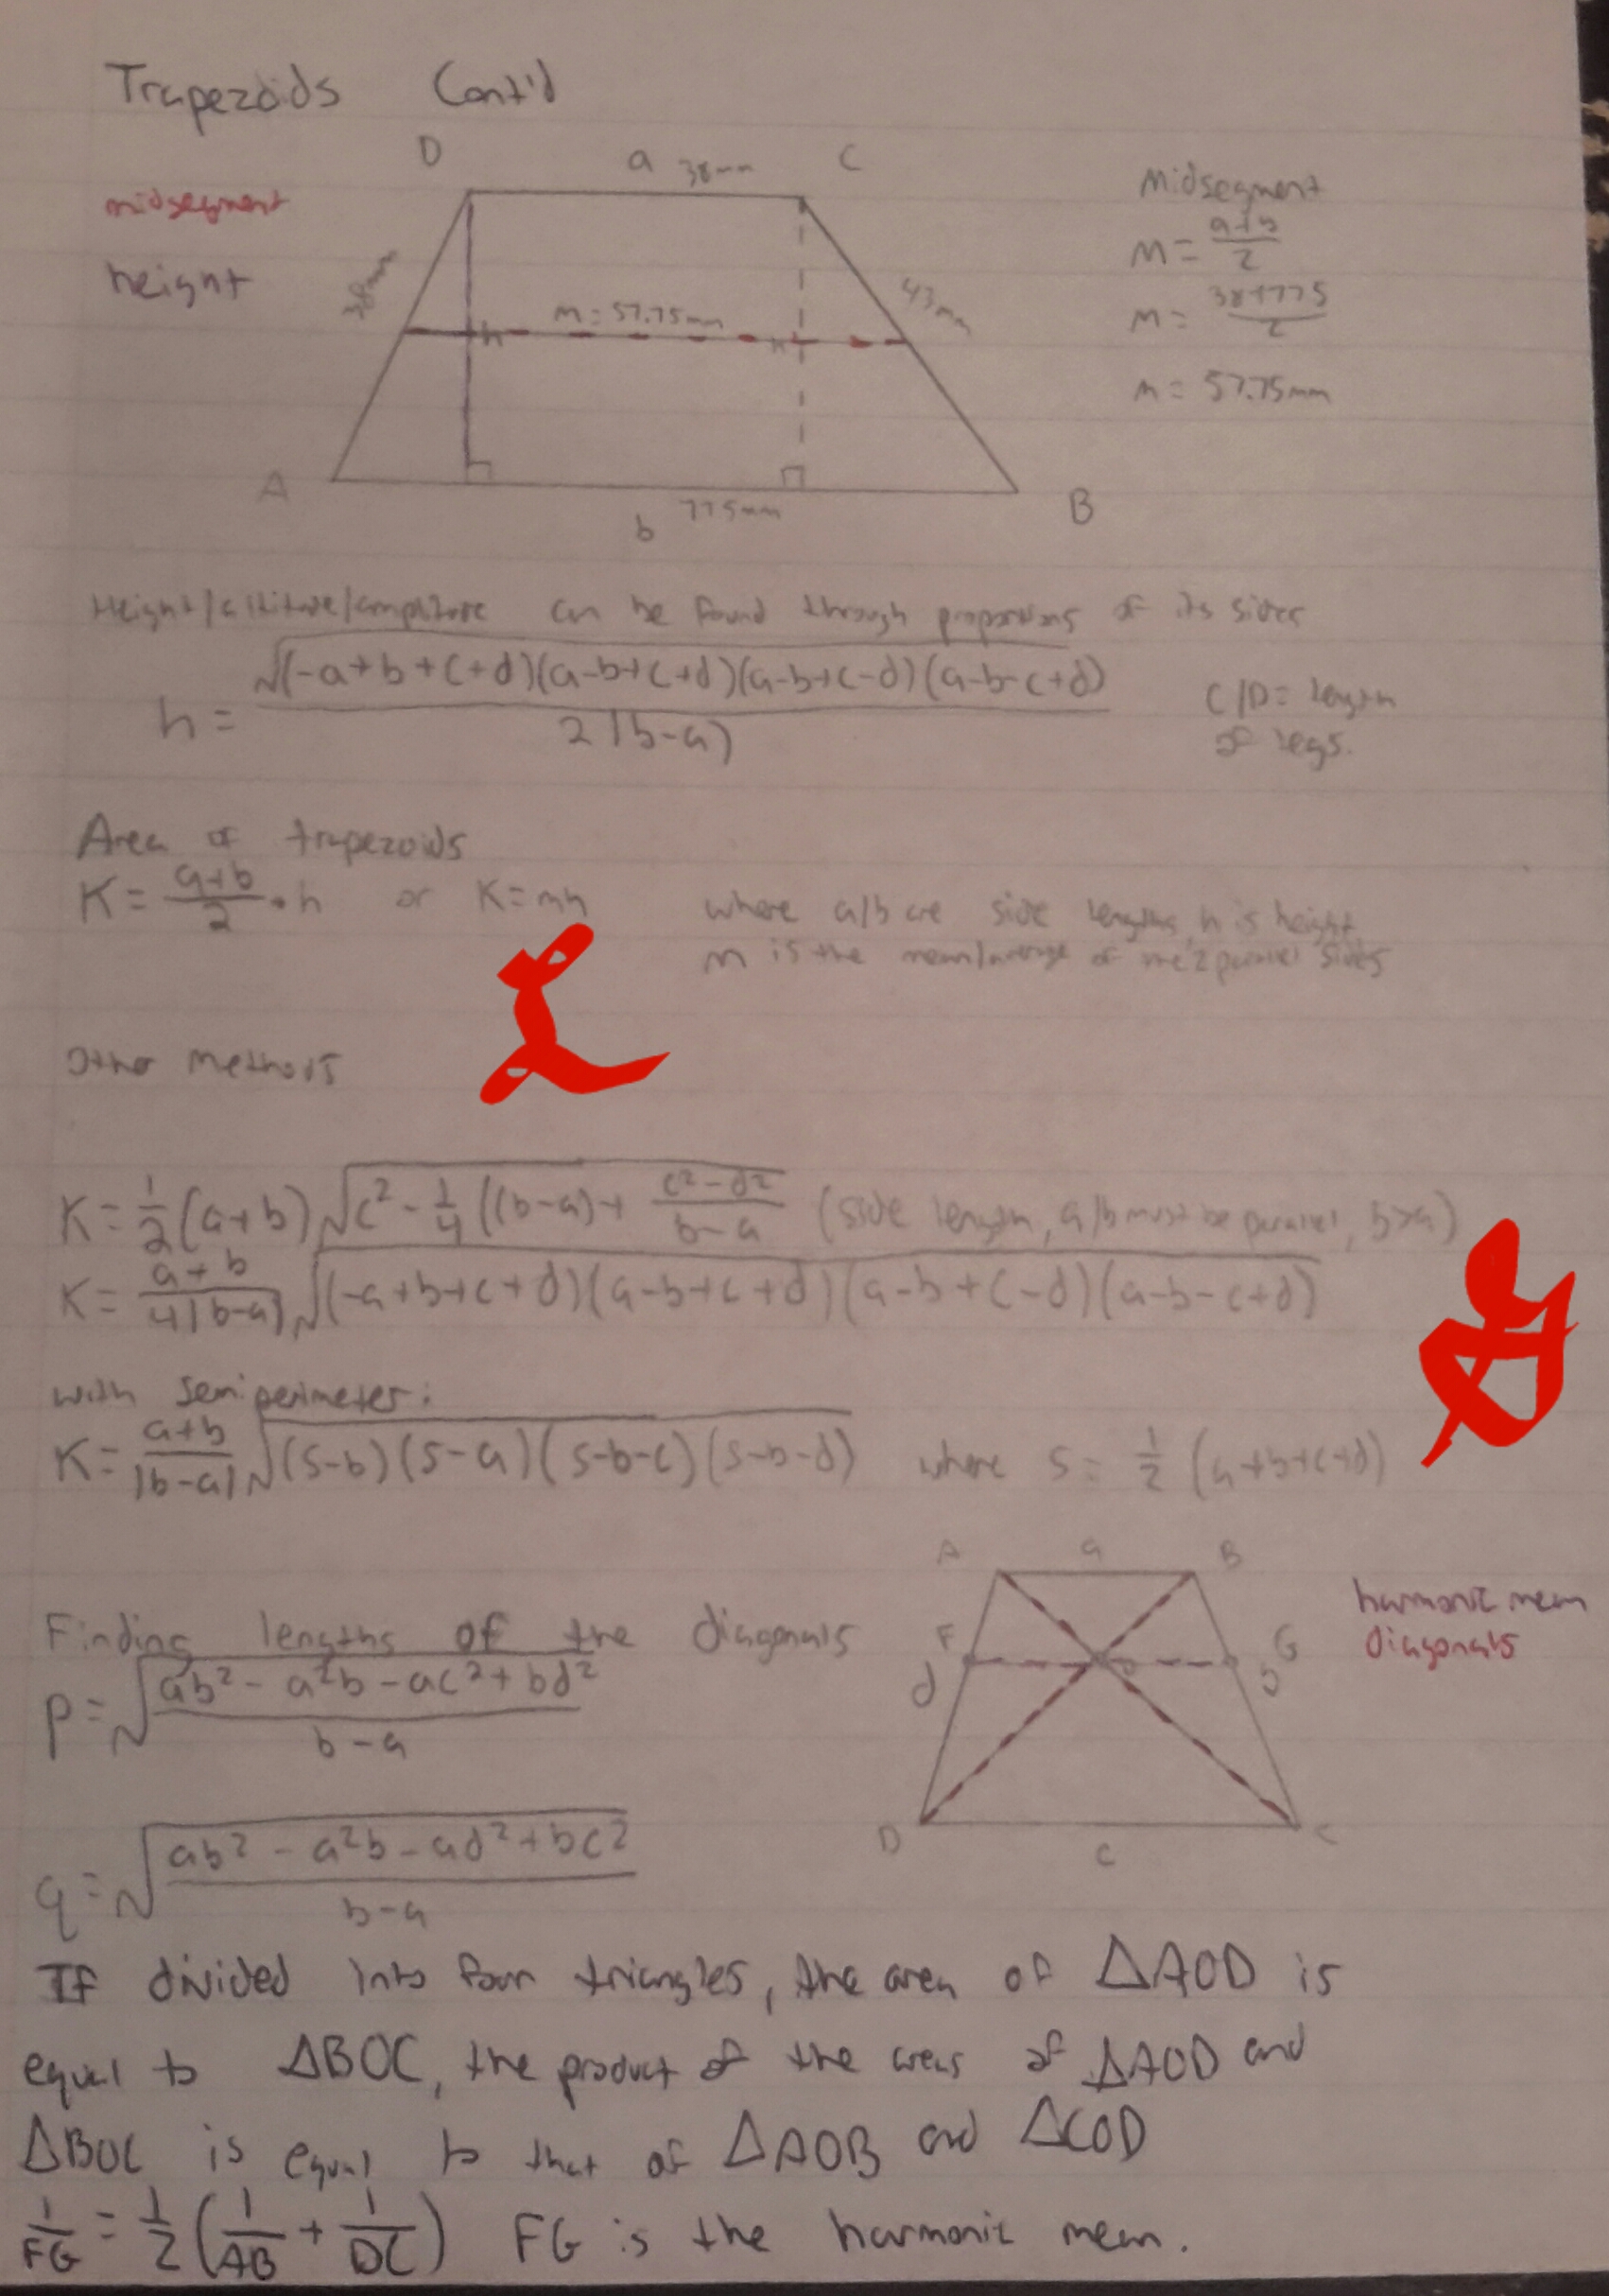 Trapezoids Cont'd
D a 38mm C
midsegment
height
38mm
43mm
m = 57.75mm
h
h
A
B
77.5mm
b
Midsegment
M = a+b/2
M = 38+77.5/2
m = 57.75mm
Height/altitude/amplitude can be found through proportions of its sides
h = √(-a+b+c+d)(a-b+c+d)(a-b+c-d)(a-b-c+d) / 2|b-a|
C/D = length
of legs.
Area of trapezoids
K = a+b/2 • h or K = mh
where a/b are side lengths, h is height
m is the mean/average of the 2 parallel sides
Other methods
K = 1/2 (a+b) √c² - 1/4 ((b-a) + c²-d²/b-a (side length, a/b must be parallel, b>a)
K = a+b/4|b-a| √(-a+b+c+d)(a-b+c+d)(a-b+c-d)(a-b-c+d)
with semiperimeter:
K = a+b/|b-a| √(s-b)(s-a)(s-b-c)(s-b-d) where s = 1/2 (a+b+c+d)
A a B
F G
d b
O
D c C
harmonic mean
diagonals
Finding lengths of the diagonals
p = √ab² - a²b - ac² + bd² / b-a
q = √ab² - a²b - ad² + bc² / b-a
If divided into four triangles, the area of △AOD is
equal to △BOC, the product of the areas of △AOD and
△BOC is equal to that of △AOB and △COD
1/FG = 1/2 (1/AB + 1/DC) FG is the harmonic mean.